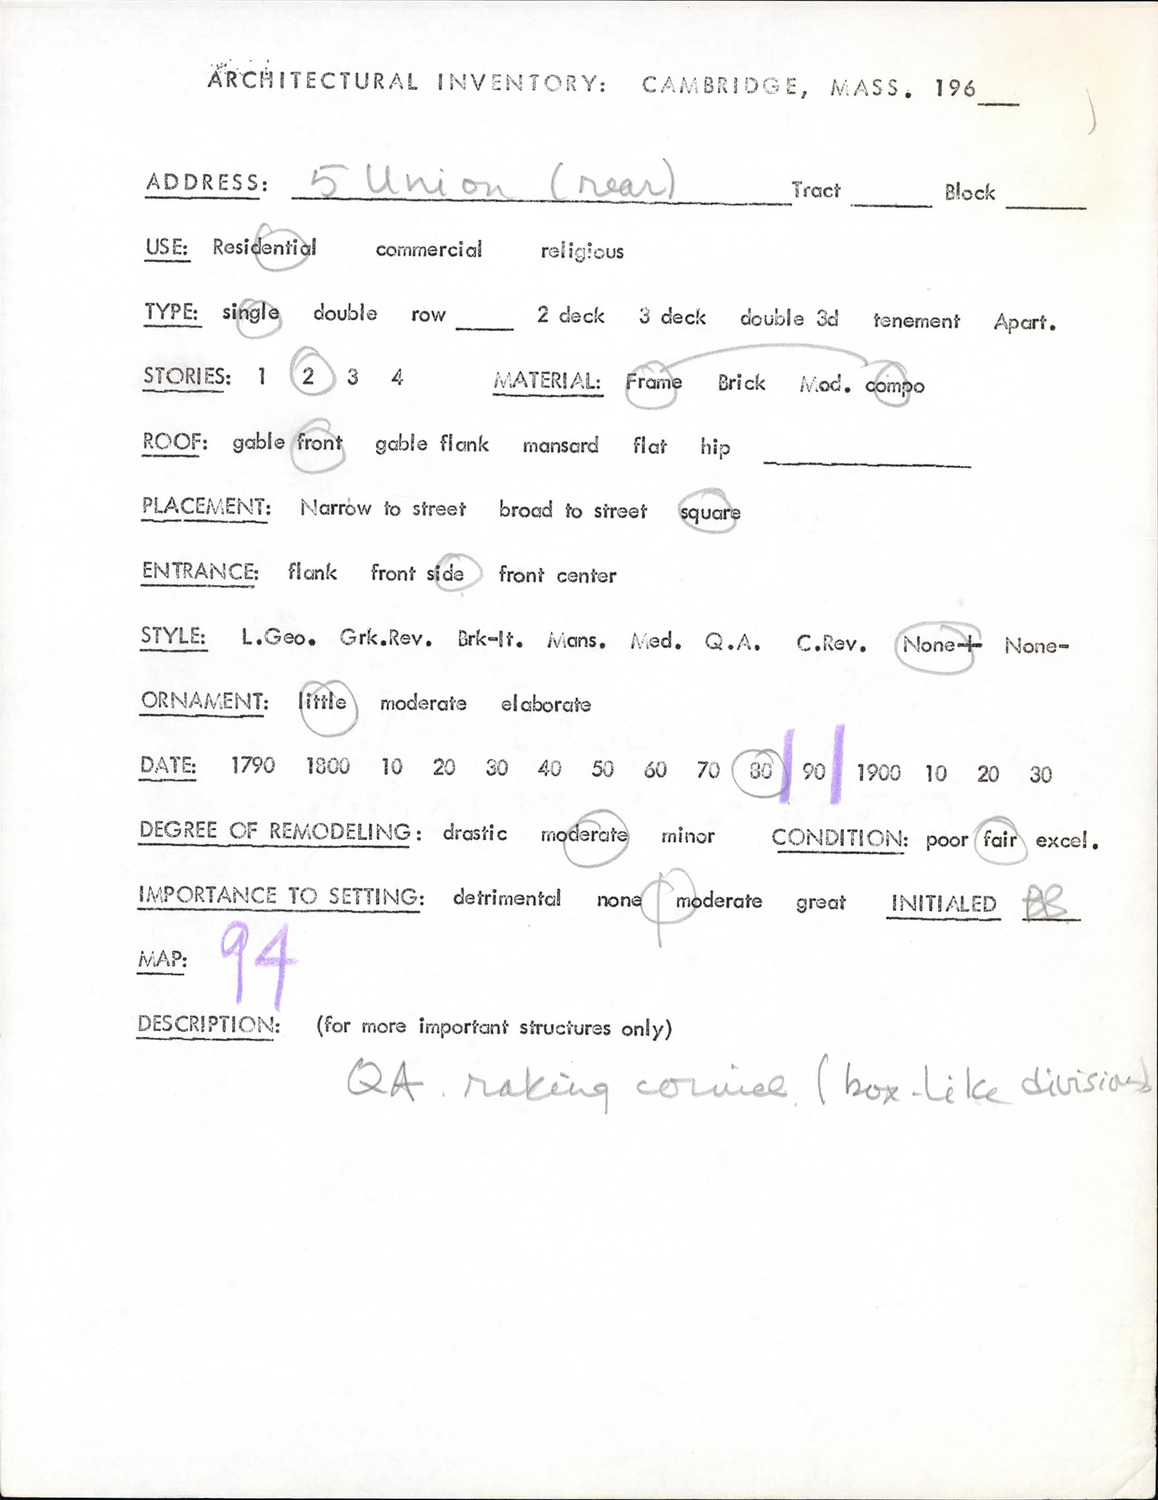 ARCHITECTURAL INVENTORY: CAMBRIDGE, MASS. 196___
ADDRESS: 5 Union (rear) Tract ______ Block ______
USE: Residential commercial religious
TYPE: single double row ____ 2 deck 3 deck double 3d tenement Apart.
STORIES: 1 2 3 4 MATERIAL: Frame Brick Mod. compo
ROOF: gable front gable flank mansard flat hip ______________
PLACEMENT: Narrow to street broad to street square
ENTRANCE: flank front side front center
STYLE: L.Geo. Grk.Rev. Brk-It. Mans. Med. Q.A. C.Rev. None+ None-
ORNAMENT: little moderate elaborate
DATE: 1790 1800 10 20 30 40 50 60 70 80 90 1900 10 20 30
DEGREE OF REMODELING: drastic moderate minor CONDITION: poor fair excel.
IMPORTANCE TO SETTING: detrimental none moderate great INITIALED
MAP: 94
DESCRIPTION: (for more important structures only)
QA raking cornice (box-like divisions)